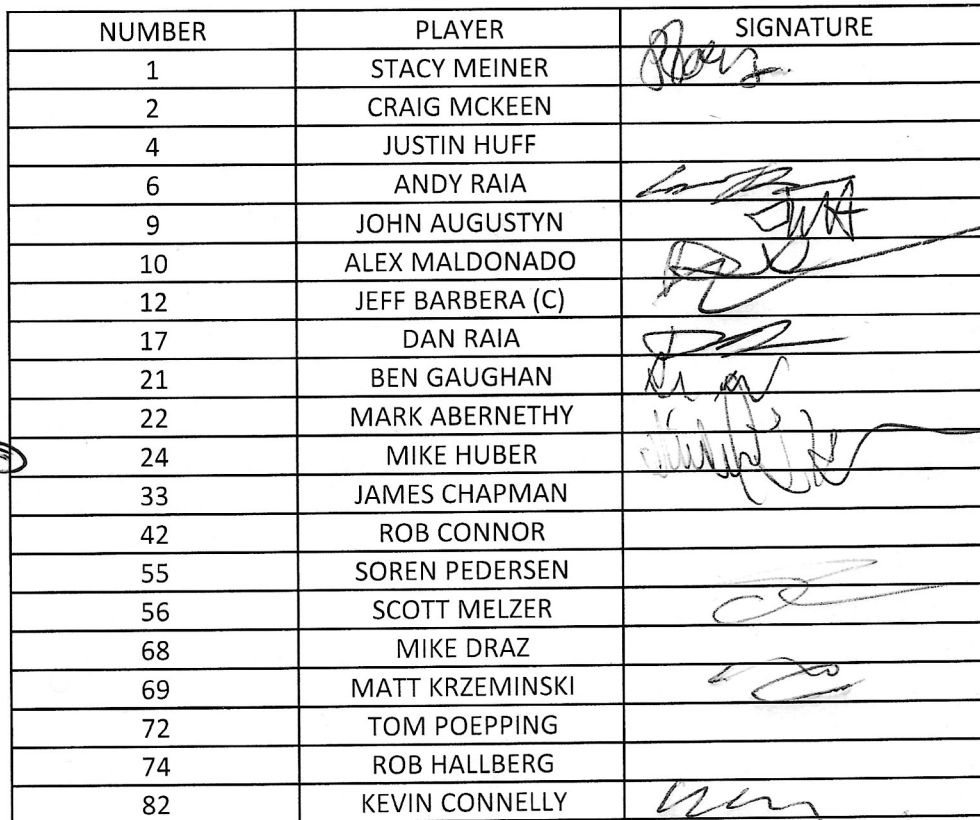 NUMBER PLAYER SIGNATURE
1 STACY MEINER
2 CRAIG MCKEEN
4 JUSTIN HUFF
6 ANDY RAIA
9 JOHN AUGUSTYN JWA
10 ALEX MALDONADO
12 JEFF BARBERA (C)
17 DAN RAIA
21 BEN GAUGHAN
22 MARK ABERNETHY
24 MIKE HUBER
33 JAMES CHAPMAN
42 ROB CONNOR
55 SOREN PEDERSEN
56 SCOTT MELZER
68 MIKE DRAZ
69 MATT KRZEMINSKI
72 TOM POEPPING
74 ROB HALLBERG
82 KEVIN CONNELLY